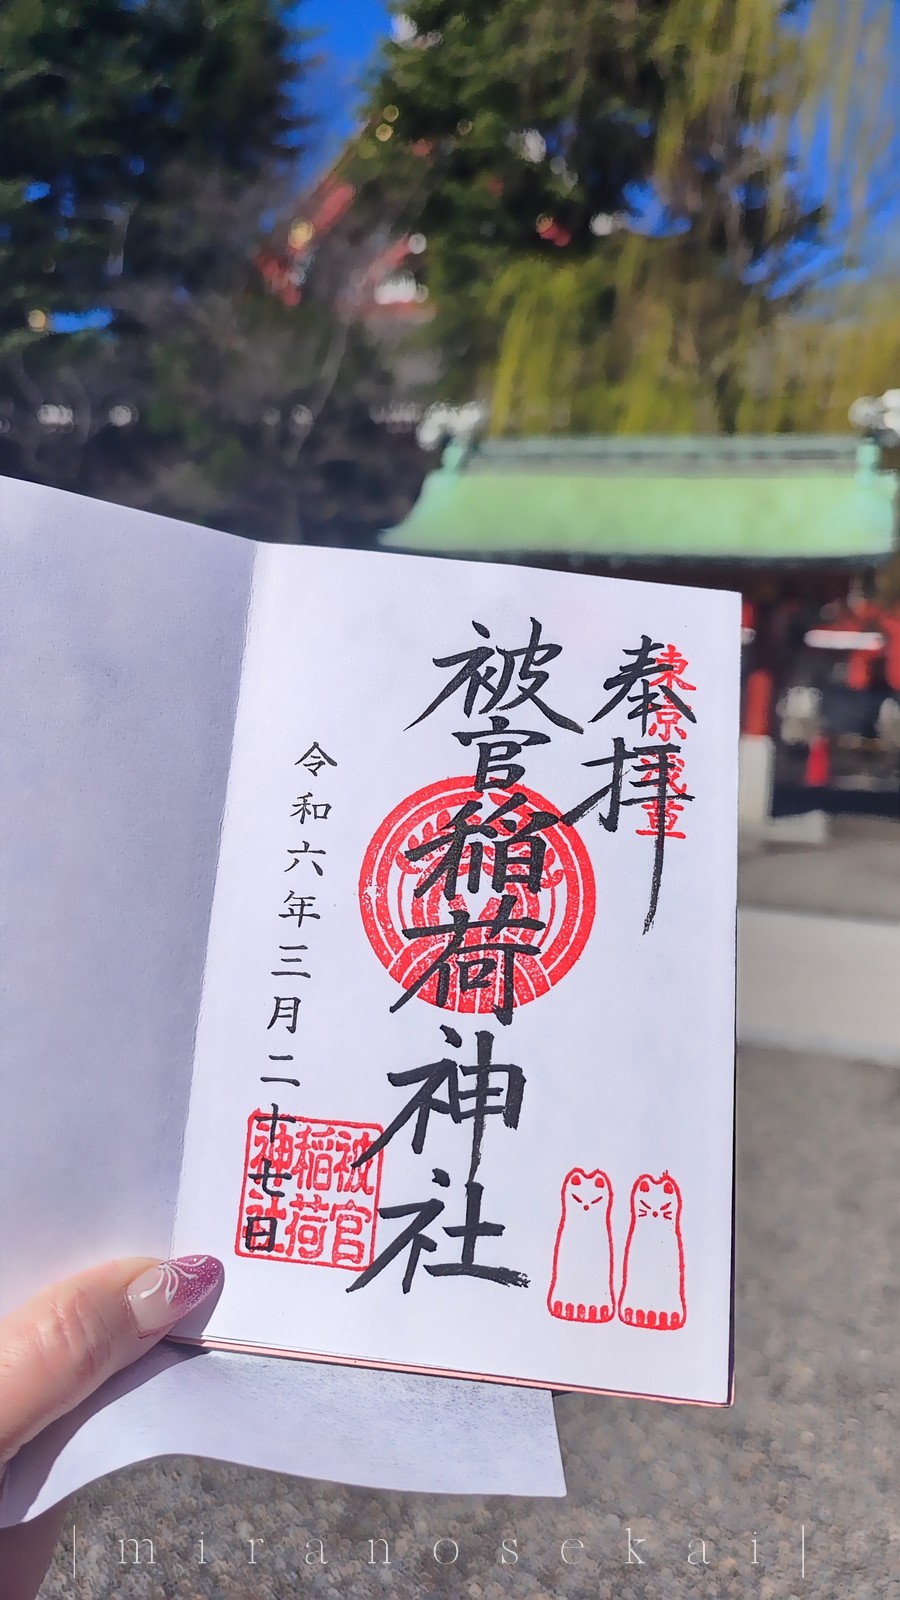 奉拝
東京浅草
被官稲荷神社
令和六年三月二十七日
被官
稲荷
神社
|miranosekai|